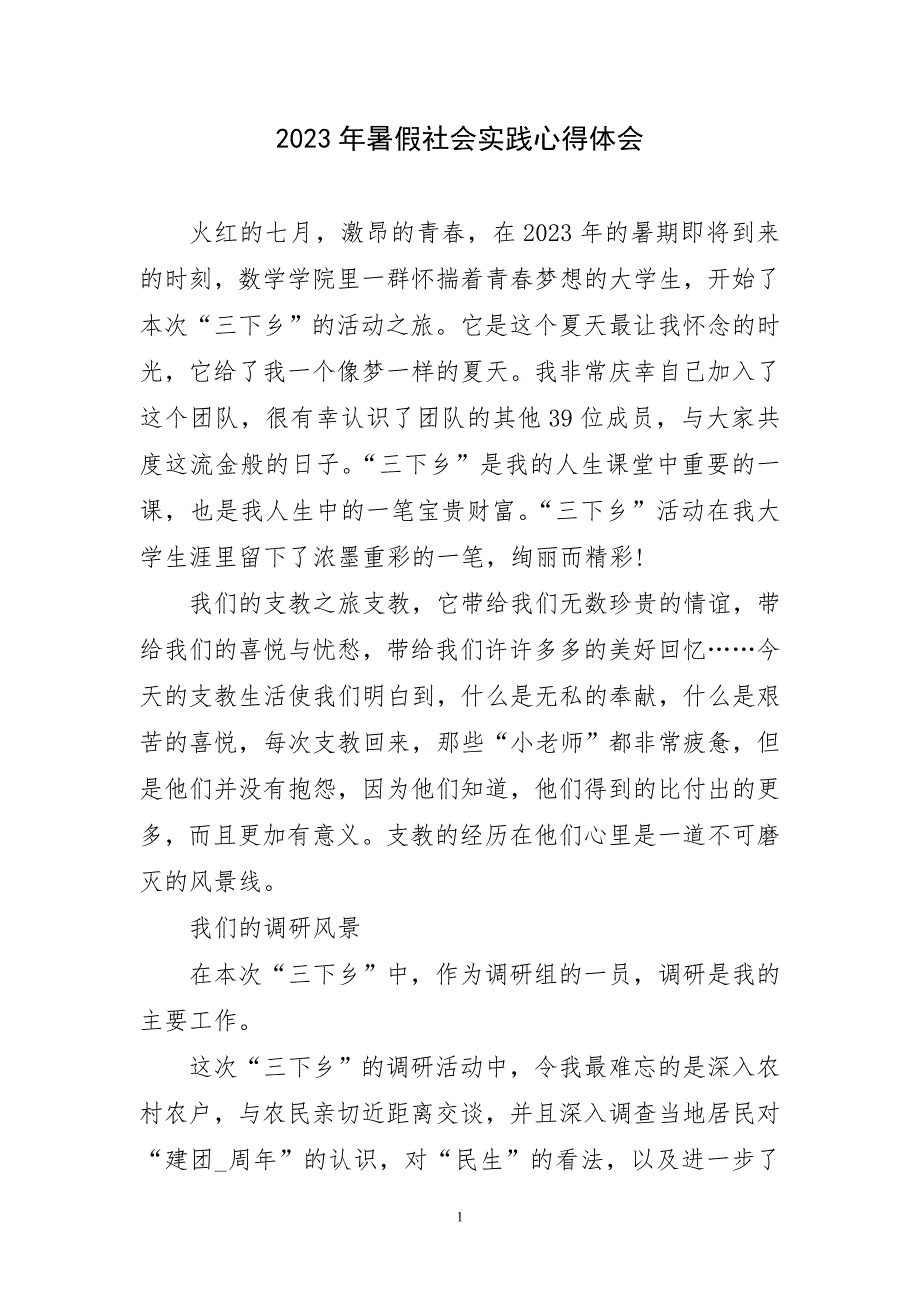 2023年暑假社会实践心得体会
火红的七月，激昂的青春，在2023年的暑期即将到来
的时刻，数学学院里一群怀揣着青春梦想的大学生，开始了
本次“三下乡”的活动之旅。它是这个夏天最让我怀念的时
光，它给了我一个像梦一样的夏天。我非常庆幸自己加入了
这个团队，很有幸认识了团队的其他39位成员，与大家共
度这流金般的日子。“三下乡”是我的人生课堂中重要的一
课，也是我人生中的一笔宝贵财富。“三下乡”活动在我大
学生涯里留下了浓墨重彩的一笔，绚丽而精彩!
我们的支教之旅支教，它带给我们无数珍贵的情谊，带
给我们的喜悦与忧愁，带给我们许许多多的美好回忆……今
天的支教生活使我们明白到，什么是无私的奉献，什么是艰
苦的喜悦，每次支教回来，那些“小老师”都非常疲惫，但
是他们并没有抱怨，因为他们知道，他们得到的比付出的更
多，而且更加有意义。支教的经历在他们心里是一道不可磨
灭的风景线。
我们的调研风景
在本次“三下乡”中，作为调研组的一员，调研是我的
主要工作。
这次“三下乡”的调研活动中，令我最难忘的是深入农
村农户，与农民亲切近距离交谈，并且深入调查当地居民对
“建团_周年”的认识，对“民生”的看法，以及进一步了
1